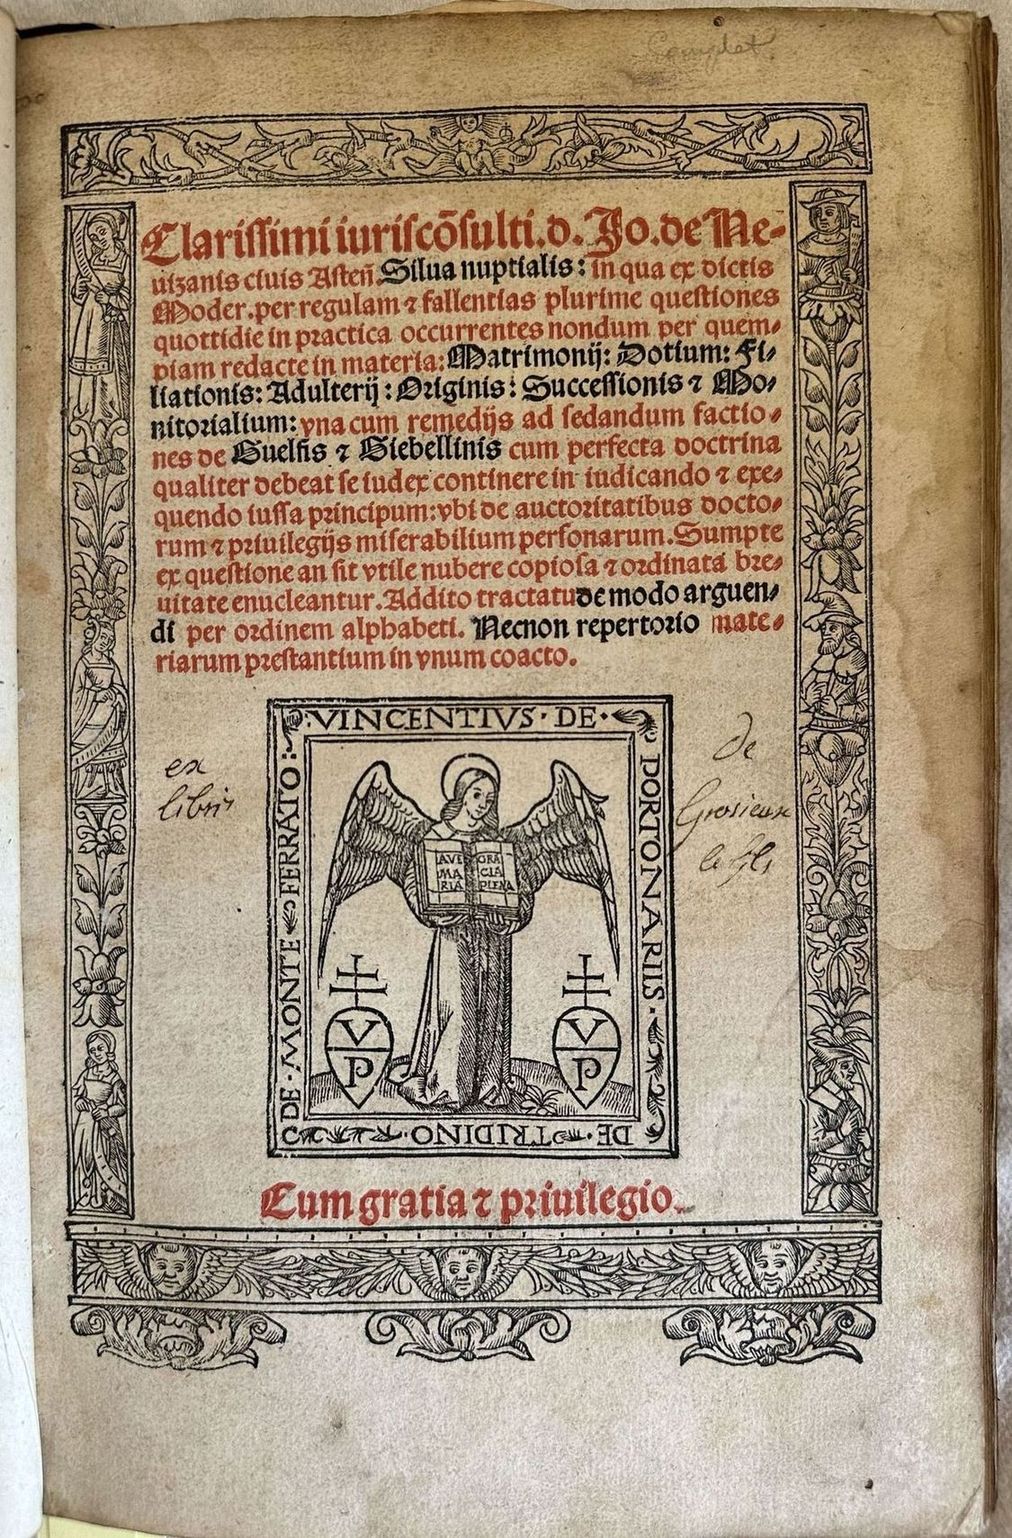 Complet
Clarissimi iuriscōsulti.d. Jo. de Ne-
uizanis ciuis Asteñ. Silua nuptialis: in qua ex dictis
Moder. per regulam ⁊ fallentias plurime questiones
quottidie in practica occurrentes nondum per quem-
piam redacte in materia: Matrimonij: Dotium: Fi-
liationis: Adulterij: Originis: Successionis ⁊ Mo-
nitorialium: vna cum remedijs ad sedandum factio-
nes de Guelfis ⁊ Giebellinis cum perfecta doctrina
qualiter debeat se iudex continere in iudicando ⁊ exe-
quendo iussa principum: vbi de auctoritatibus docto-
rum ⁊ priuilegijs miserabilium personarum. Sumpte
ex questione an sit vtile nubere copiosa ⁊ ordinata bre-
uitate enucleantur. Addito tractatu de modo arguen-
di per ordinem alphabeti. Necnon repertorio mate-
riarum prestantium in vnum coacto.
VINCENTIVS · DE ·
PORTONARIIS ·
DE · TRIDINO ·
DE · MONTE FERRATO :
AVE MARIA
GRACIA PLENA
V P
V P
ex
libris
de
le fils
Cum gratia ⁊ priuilegio.